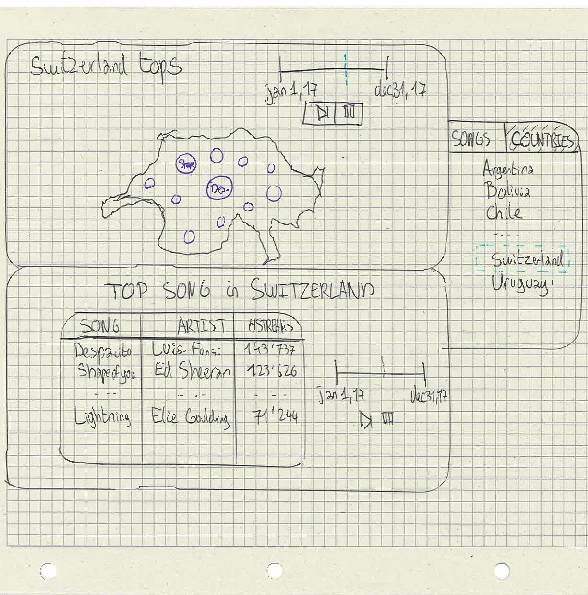 Switzerland tops
jan 1, 17
dic 31, 17
SONGS
COUNTRIES
Argentina
Bolivia
Chile
Switzerland
Uruguay
Shape
Des.
TOP SONG in SWITZERLAND
SONG ARTIST #STREAMS
Despacito Luis Fonsi 143'737
Shape of you Ed Sheeran 123'626
Lightning Elie Goulding 71'244
jan 1, 17
dec 31, 17